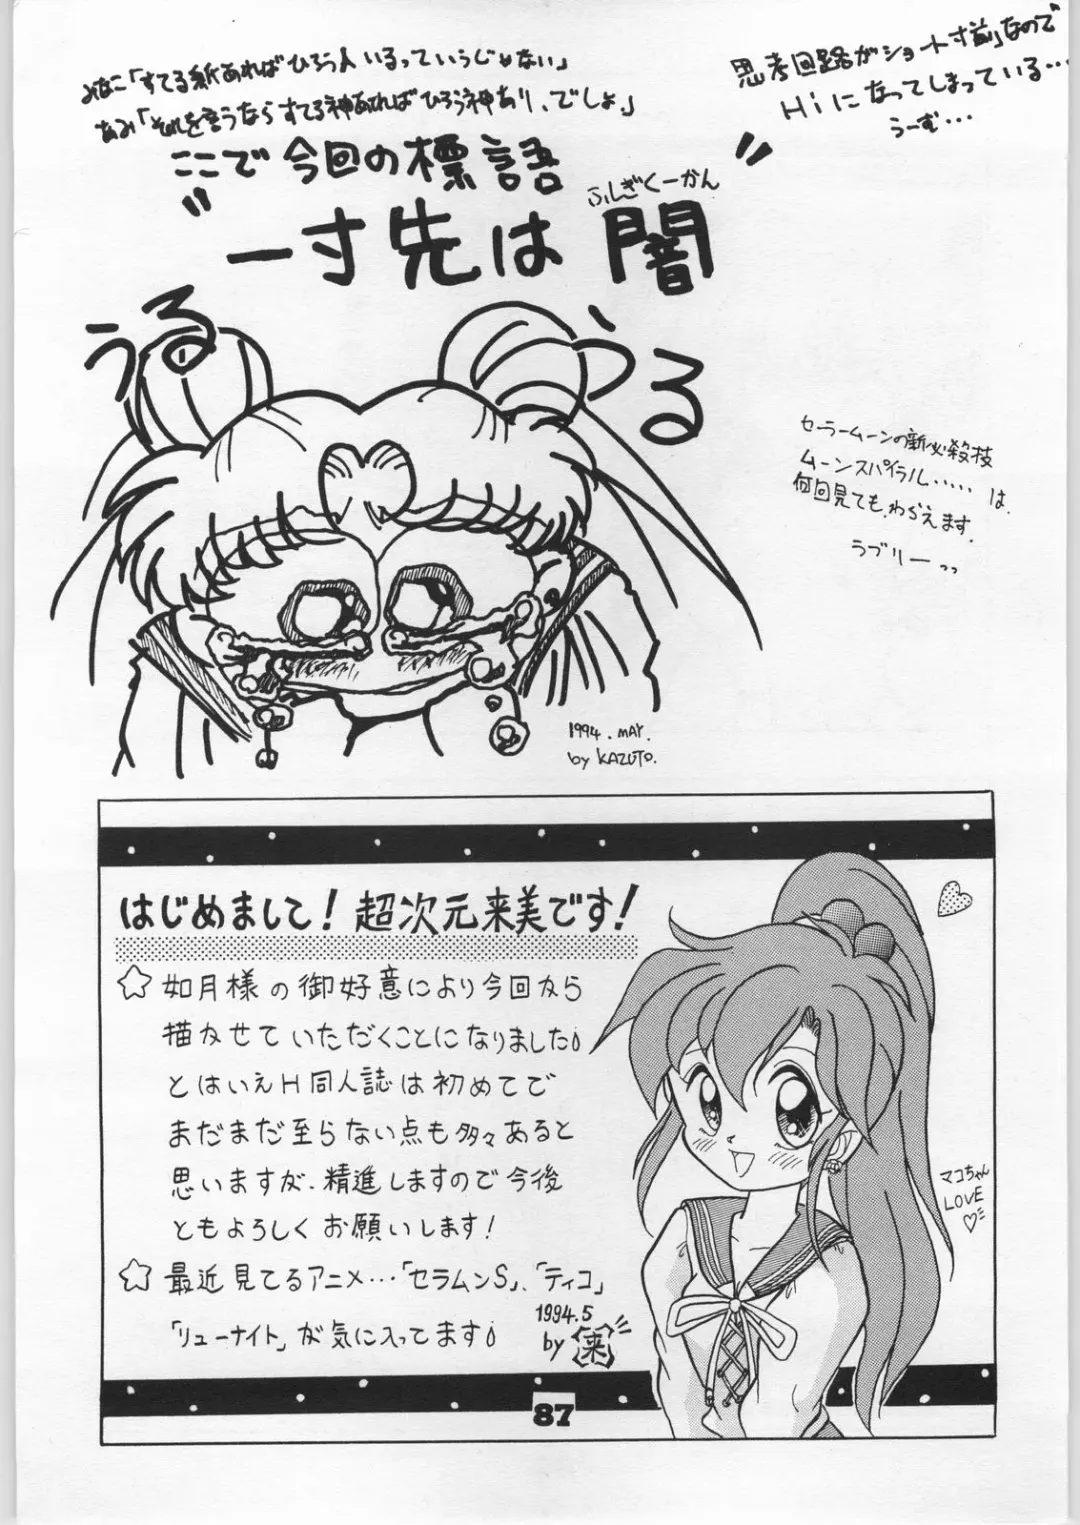 みなこ「すてる紙あればひろう人いるっていうじゃない」
あみ「それを言うならすてる神あればひろう神あり、でしょ」
思考回路がショート寸前」なので
Hiになってしまっている…
うーむ…
ここで今回の標語
"一寸先は闇"
ふしぎくーかん
うる
うる
セーラームーンの新必殺技
ムーンスパイラル…..は
何回見ても、わらえます。
ラブリーっっ
1994. MAY.
by KAZUTO.
はじめまして!超次元来美です!
☆如月様の御好意により今回から
描かせていただくことになりました
とはいえH同人誌は初めてで
まだまだ至らない点も多々あると
思いますが、精進しますので今後
ともよろしくお願いします!
☆最近見てるアニメ…「セラムンS」、「ティコ」
「リューナイト」が気に入ってます
1994.5
by 来
マコちゃん
LOVE♡
87